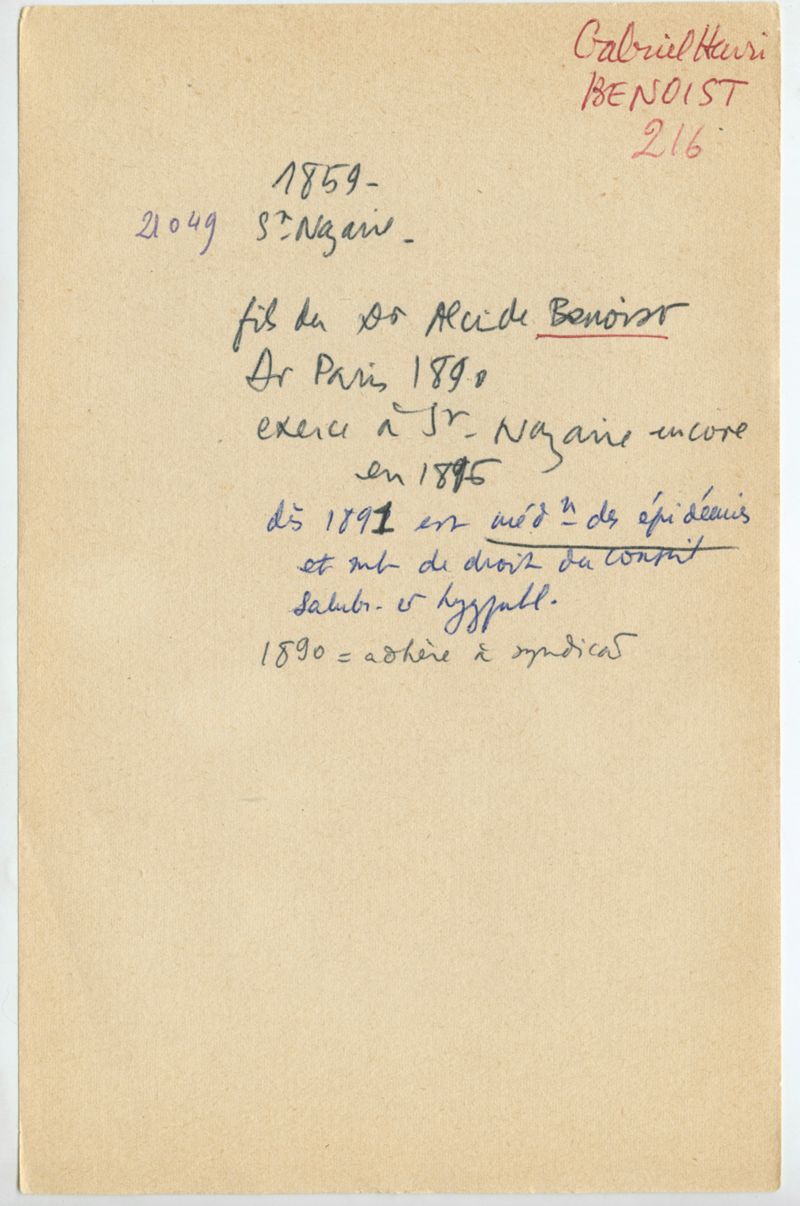 Gabriel Henri
BENOIST
216
1859 -
21049 St Nazaire -
fils du Dr Alcide Benoist
Dr Paris 1890
exerce à St - Nazaire encore
en 1895
dès 1891 est médn des épidémies
et mb de droit du conseil
salub. et hyg publ.
1890 = adhère à syndicat